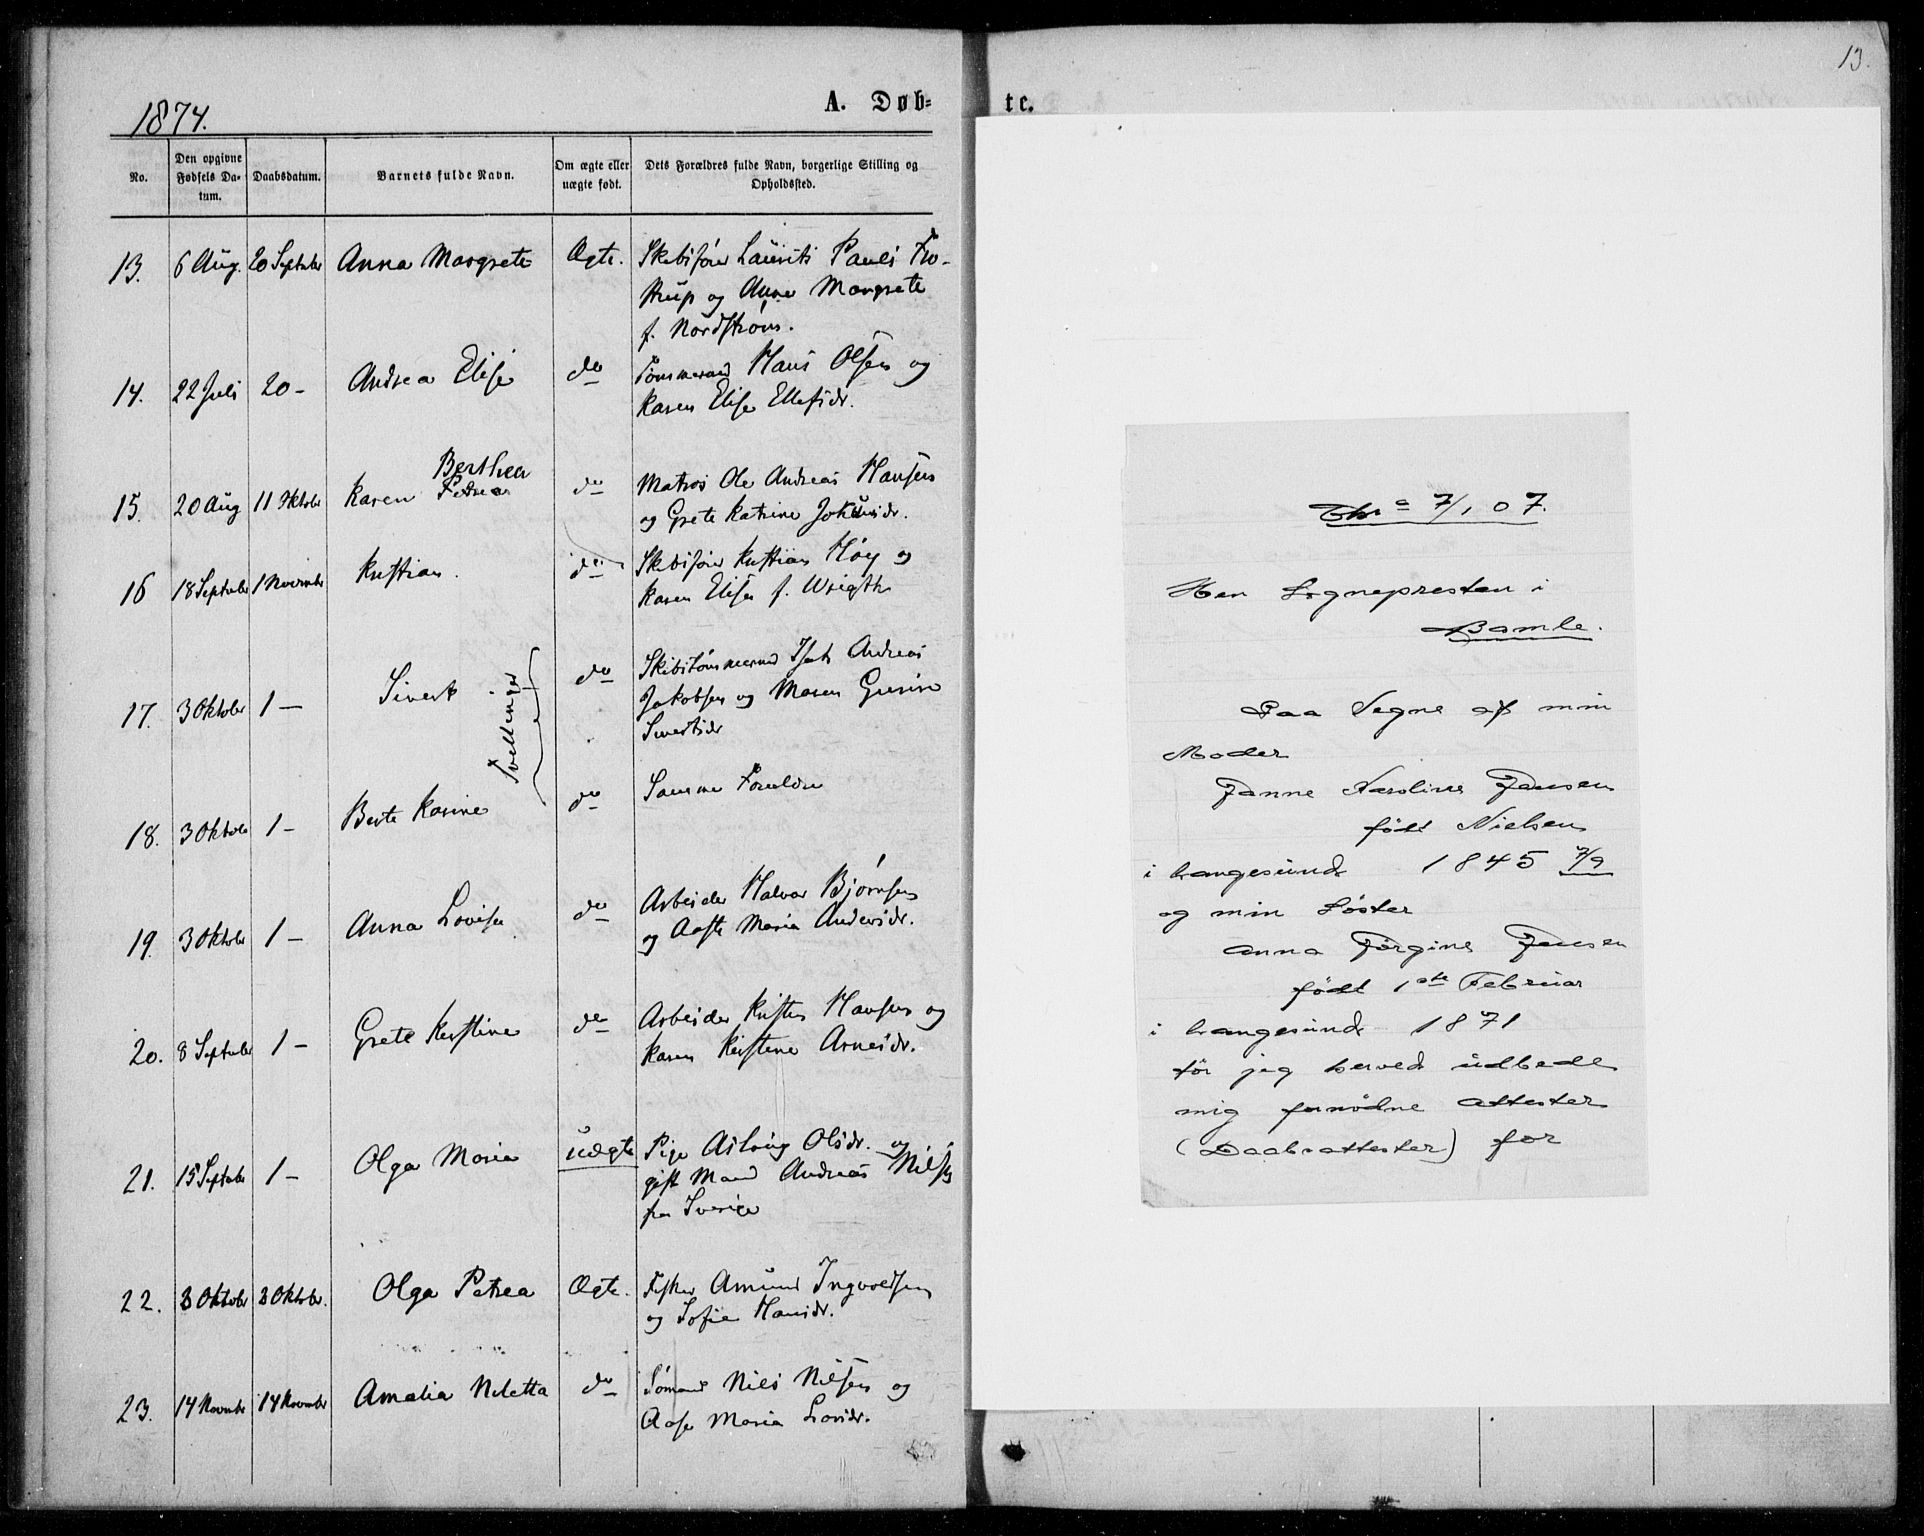 1874.
A. Døb=
te.
13.
No.
Den opgivne Fødsels Da= tum.
Daabsdatum.
Barnets fulde Navn.
Om ægte eller uægte født.
Dets Forældres fulde Navn, borgerlige Stilling og Opholdssted.
13. 6 Aug. 20 Septuber Anna Margrete Ægte. Skibsfører Laurits Pauli Fro-
strup og Anne Margrete
f. Nordstrøm.
14. 22 Juli 20 - Andrea Elise do Tømmermd Hans Olsen og
Karen Elise Ellefsdr.
Berthea
15. 20 Aug 11 Oktober Karen Petrea do Matros Ole Andreas Hansen
og Grete Katrine Johansdr.
16 18 Septuber 1 November Kristian. do Skibsfører Kristian Høy og
Karen Elise f. Wrigth
17. 3 Oktober 1 - Sivert Tvellinger do Skibstømmermd Isak Andreas
Jakobsen og Maren Gurine
Sivertsdr
18. 3 Oktober 1 - Berte Karine do Samme Forældre
19. 3 Oktober 1 - Anna Lovise do Arbeider Halvor Bjørnsen
og Aaste Maria Andersdr.
20. 8 Septuber 1 - Grete Kirstine do Arbeider Kristen Hansen og
Karen Kirstene Arnesdr.
21. 15 Septuber 1 - Olga Maria uægte Pige Aslaug Olsdr. og
gift Mand Andreas Nilsen
fra Sverige
22. 3 Oktober 3 Oktober. Olga Petrea Ægte. Fisker Amund Ingvoldsen
og Sofie Hansdr.
23. 14 Novmber 14 Novmber Amalia Niletta do Sømand Nils Nilsen og
Aase Maria Larsdr.
Chra 7/1 07.
Herr Sognepresten i
Bamle.
Paa Vegne af min
Moder
Janne Karoline Jansen
født Nielsen
i Langesund 1845 7/9
og min Søster
Anna Jørgine Jansen
født 1ste Februar
i Langesund 1871
tør jeg herved udbede
mig fornødne attester
(Daabsattester) for